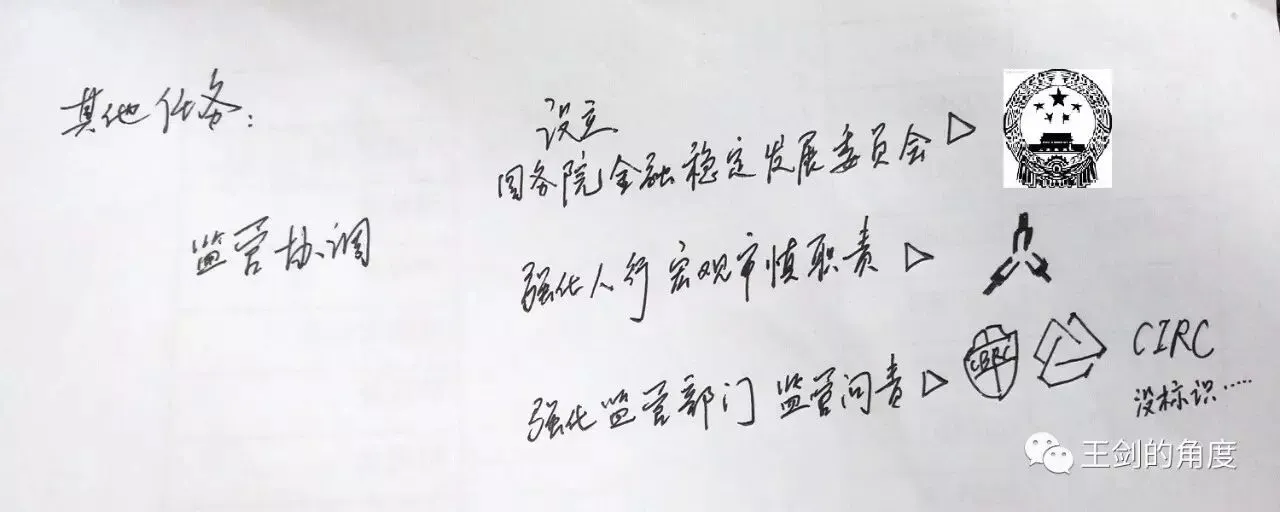 其他任务:
设立
国务院金融稳定发展委员会
监管协调
强化人行宏观审慎职责
强化监管部门 监管问责
CBRC
CIRC
没标识……
王剑的角度